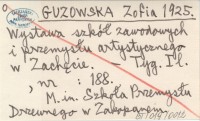 GUZOWSKA Zofia 1925.
Wystawa szkół zawodowych
i przemysłu artystycznego
w Zachęcie. Tyg. Il.
, nr : 188.
M.in. Szkoła Przemysłu
Drzewnego w Zakopanem.